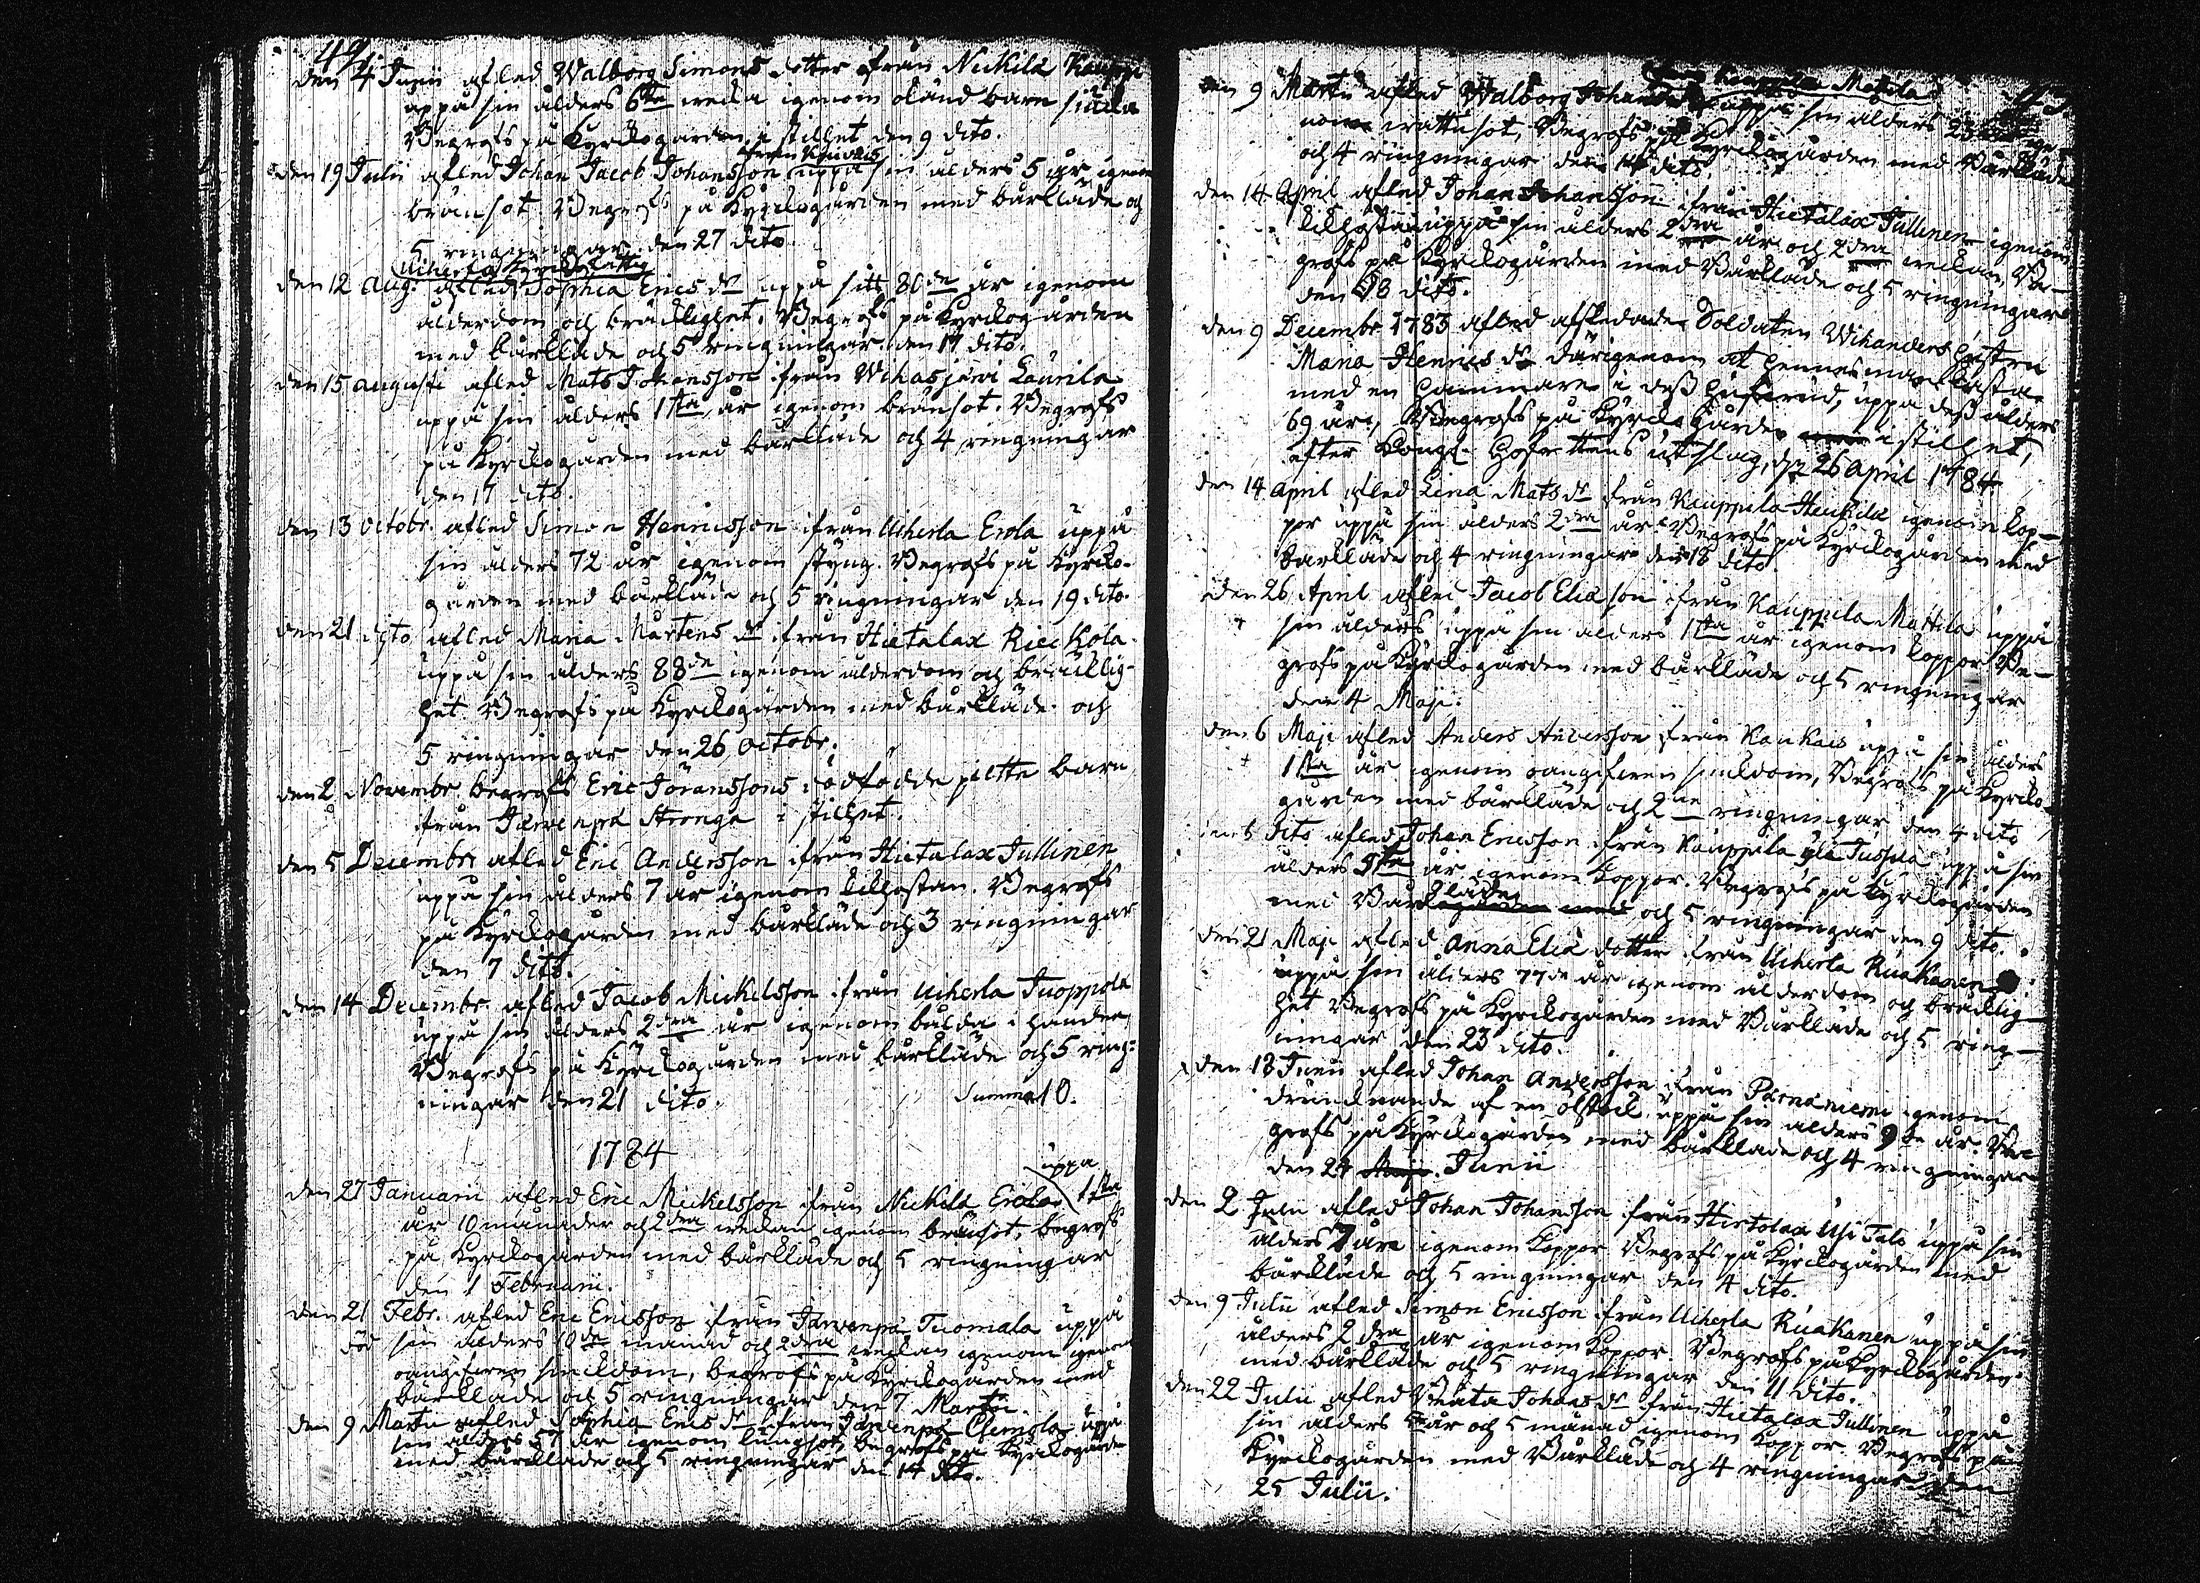 42.
den 4 Junii afled Walborg Simons dotter ifrån Nickilä Kauppi
uppå sin ålders 6te wecka igenom okänd barn siukla
Begrofs på Kyrckogården i stillhet den 9 dito.
ifrån Kaukais
den 19 Julii afled Johan Jacob Johansson uppå sin ålders 5 år igenom
brånsot. Begrofs på Kyrckogården med bårkläde och
5 ringningar den 27 dito.
Uiherla Kyrckofattig
den 12 Aug: afled Sophia Erics dr uppå sitt 80de år igenom
ålderdom och bräcklighet. Begrofs på Kyrckogården
med bårkläde och 5 ringningar den 17 dito.
den 15 augusti afled Mats Johansson ifrån Wihasjärvi Laurila
uppå sin ålders 1sta år igenom brånsot. Begrofs
på Kyrckogården med bårkläde och 4 ringningar
den 17 dito.
den 13 octobr. afled Simon Henricsson ifrån Uiherla Erola uppå
sin ålders 72 år igenom styng. Begrofs på Kyrcko-
gården med bårkläde och 5 ringningar den 19 dito.
den 21 dito afled Maria Mårtens dr ifrån Hietalax Rieckola
uppå sin ålders 88de igenom ålderdom och bräcklig-
het. Begrofs på Kyrckogården med bårkläde och
5 ringningar den 26 octobr.
den 2 Novembr begrofs Eric Jöranssons dödfödde piltte barn
ifrån Järvenpä Stronga i stillhet.
den 5 Decembr afled Eric Andersson ifrån Hietalax Jullinen
uppå sin ålders 7 år igenom kikhostan. Begrofs
på Kyrckogården med bårkläde och 3 ringningar
den 7 dito.
den 14 Decembr. afled Jacob Mickelsson ifrån Uiherla Tuoppola
uppå sin ålders 2dra år igenom bålda i handen
Begrofs på Kyrckogården med bårkläde och 5 ring:
ningar den 21 dito. Summa 10.
1784
uppå
den 27 Januarii afled Eric Mickelsson ifrån Nickilä Erola 1sta
år 10 månader och 2dra weckan igenom brånsot, begrofs
på Kyrckogården med bårkläde och 5 ringningar
den 1 Februarii.
den 21 Febr. afled Eric Ericsson ifrån Järvenpä Tuomala uppå
sin ålders 10de månad och 2dra weckan igenom igenom
oangifven siukdom, begrofs på Kyrckogården med
bårkläde och 5 ringningar den 7 Martii.
den 9 Martii afled Sophia Erics dr ifrån Järvenpä Clemola uppå
sin ålders 57 år igenom lungsot, begrofs på Kyrckogården
med bårkläde och 5 ringningar den 14 dito.
43.
Kauppila Matila
den 9 Martii afled Walborg Johans uppå sin ålders 23 ige-
nom wattusot, Begrofs på Kyrckogården med Bårkläde
och 4 ringningar den 14 dito.
den 14 April afled Johan Johansson ifrån Hietalax Jullinen igenom
kikhosta uppå sin ålders 2dra år och 2dra weckan, Be-
grofs på Kyrckogården med Bårkläde och 5 ringningar
den 18 dito.
den 9 Decembr 1783 afled afskedade Soldaten Wihanders hustru
Maria Henrics dr därigenom at hennes man kasta
med en hammare i dess hufvud, uppå dess ålders
69 år, Begrofs på Kyrckogården i stillhet,
efter Kongl. Hofrettens utslag, d 26 April 1784
den 14 April afled Lena Mats dr ifrån Kauppila Heickilä igenom kop-
por uppå sin ålders 2dra år. Begrofs på Kyrckogården med
bårkläde och 4 ringningar den 18 dito.
den 26 April afled Jacob Eliæson ifrån Kauppila Mattila uppå
sin ålders uppå sin ålders 1sta år igenom koppor Be-
grofs på Kyrckogården med bårkläde och 5 ringningar
den 4 Maji.
den 6 Maji afled Anders Andersson ifrån Kaukais uppå sin ålders
1sta år igenom oangifven siukdom, Begrofs på Kyrcko-
gården med bårkläde och 2ne ringningar den 4 dito
den 6 dito afled Johan Ericsson ifrån Kauppila yli Jussila uppå sin
ålders 9 år igenom koppor. Begrofs på Kyrckogården
med Bårkläde och 5 ringningar den 9 dito.
den 21 Maji afled Anna Eliæ dotter ifrån Uiherla Ruakanen
uppå sin ålders 77de år igenom ålderdom och bräcklig-
het Begrofs på Kyrckogården med Bårkläde och 5 ring-
ningar den 23 dito.
den 18 Junii afled Johan Andersson ifrån Pärnäniemi igenom
drunknande af en ölstock uppå sin ålders 9de år. Be-
grofs på Kyrckogården med bårkläde och 4 ringningar
den 24 Maji. Junii
den 2 Julii afled Johan Johansson ifrån Hietalax Usi Talo uppå sin
ålders 7 åra igenom koppor Begrofs på Kyrckogården med
bårkläde och 5 ringningar den 4 dito.
den 9 Julii afled Simon Ericsson ifrån Uiherla Ruakanen uppå sin
ålders 2dra år igenom koppor. Begrofs på Kyrckogården
med bårkläde och 5 ringningar den 11 dito.
den 22 Julii afled Beata Johans dr ifrån Hietalax Jullinen uppå
sin ålders år och 5 månad igenom koppor. Begrofs på
Kyrckogården med Bårkläde och 4 ringningar den
25 Julii.